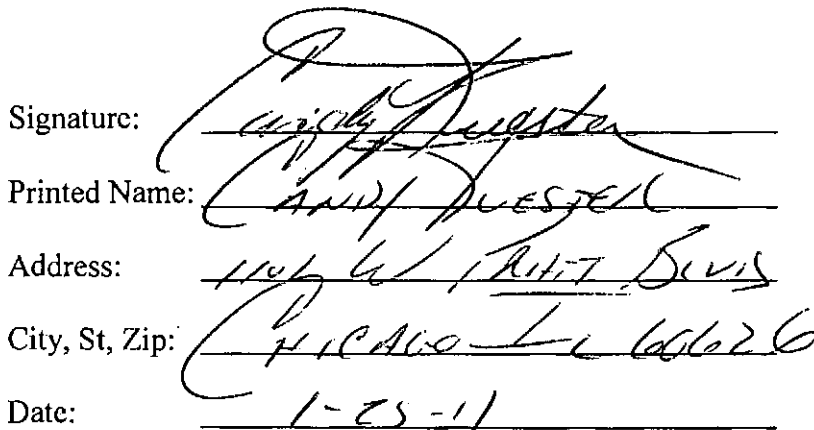 Signature: 
Printed Name: CANDY
Address: W PRATT BLVD
City, St, Zip: CHICAGO IL 60626
Date: 1-25-11